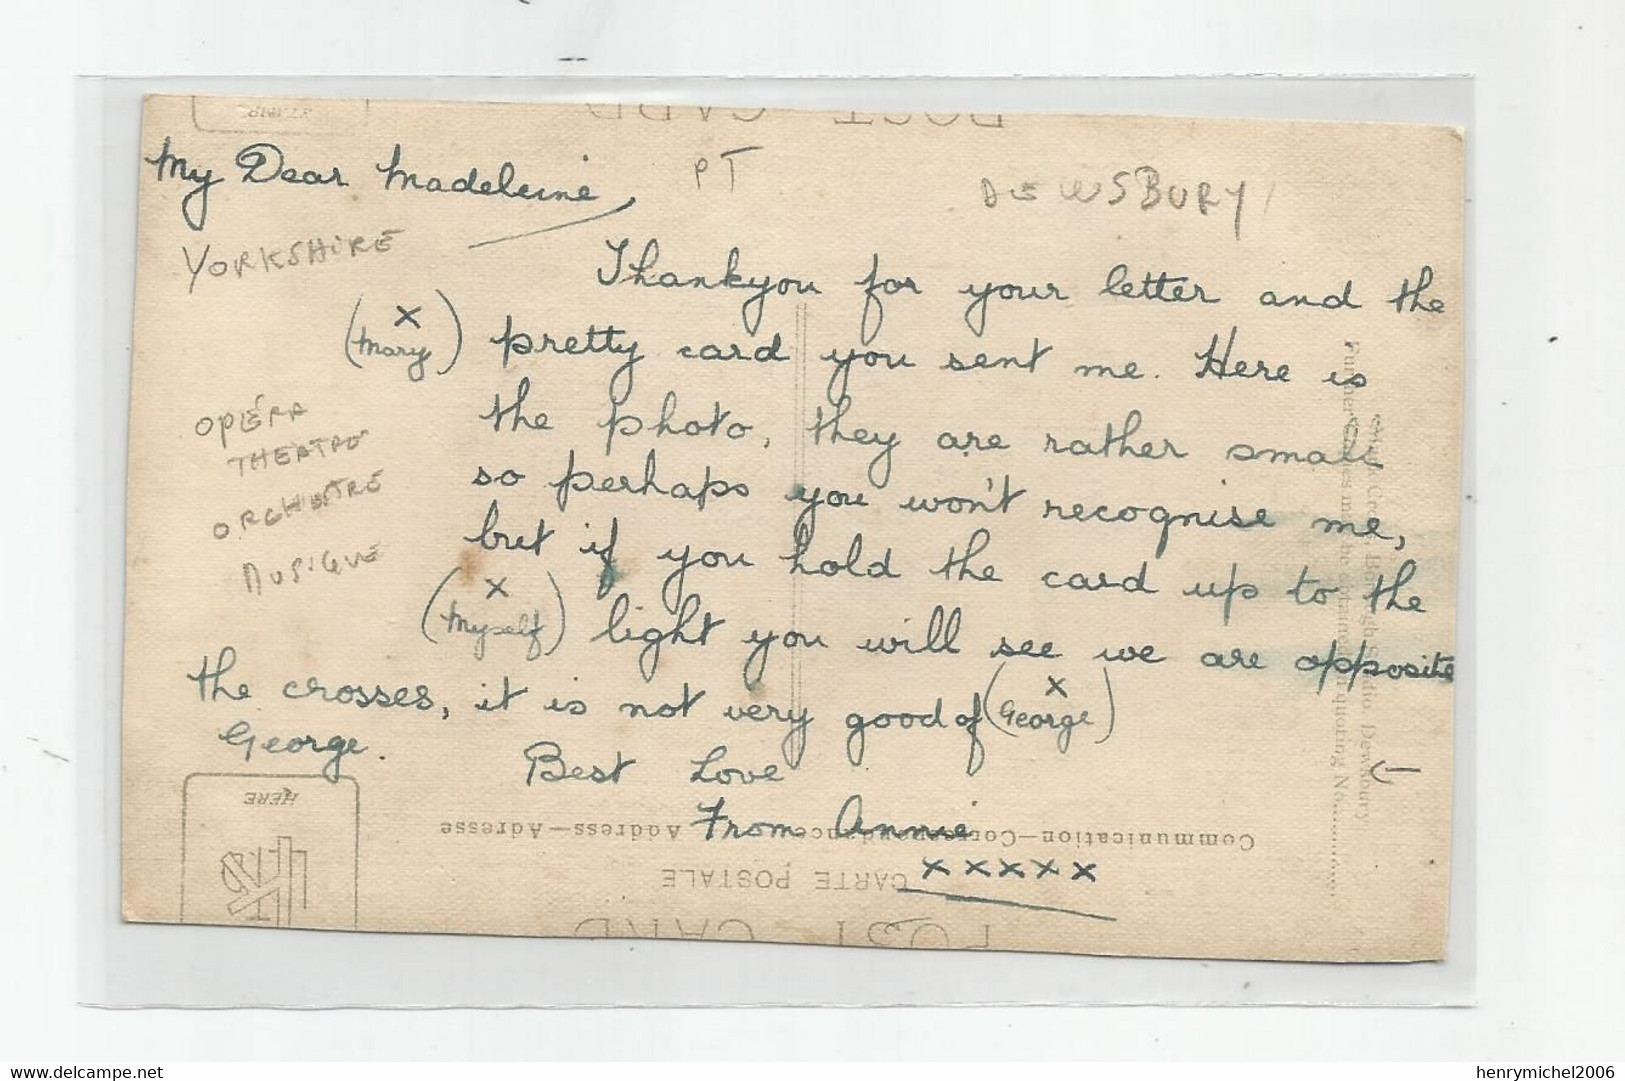 POST CARD
My Dear Madeleine,
PT
DEWSBURY
YORKSHIRE
Thankyou for your letter and the
(Mary) x pretty card you sent me. Here is
the photo, they are rather small
so perhaps you won't recognise me,
but if you hold the card up to the
(Myself) x light you will see we are opposite
the crosses, it is not very good of (George) x
George.
Best Love
From Annie
xxxxx
OPÉRA
THEATRE
ORCHESTRE
MUSIQUE
HERE
STAMP
Communication—Correspondance Address—Adresse
CARTE POSTALE
POST CARD
Studio, Dewsbury
quoting No.
delcampe.net
henrymichel2006